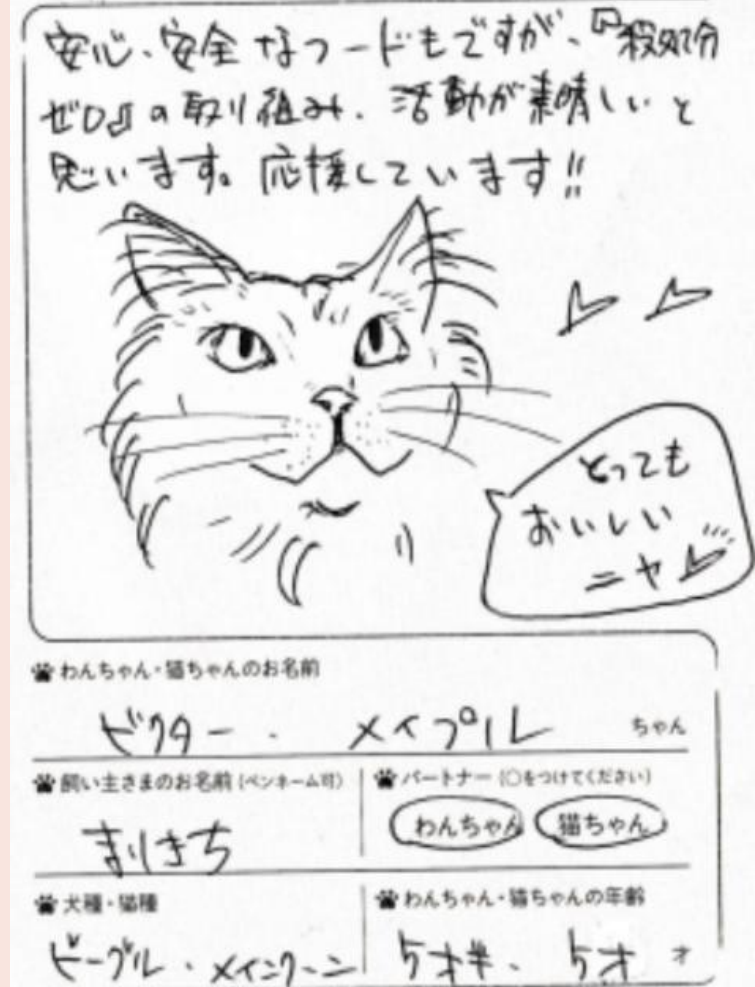 安心、安全なフードもですが、『殺処分
ゼロ』の取り組み、活動が素晴しいと
思います。応援しています!!
とっても
おいしい
ニャ
わんちゃん・猫ちゃんのお名前
ビクター・メイプル ちゃん
飼い主さまのお名前 (ペンネーム可)
まりきち
パートナー (○をつけてください)
わんちゃん 猫ちゃん
犬種・猫種
ビーグル・メインクーン
わんちゃん・猫ちゃんの年齢
5才半、5才 才